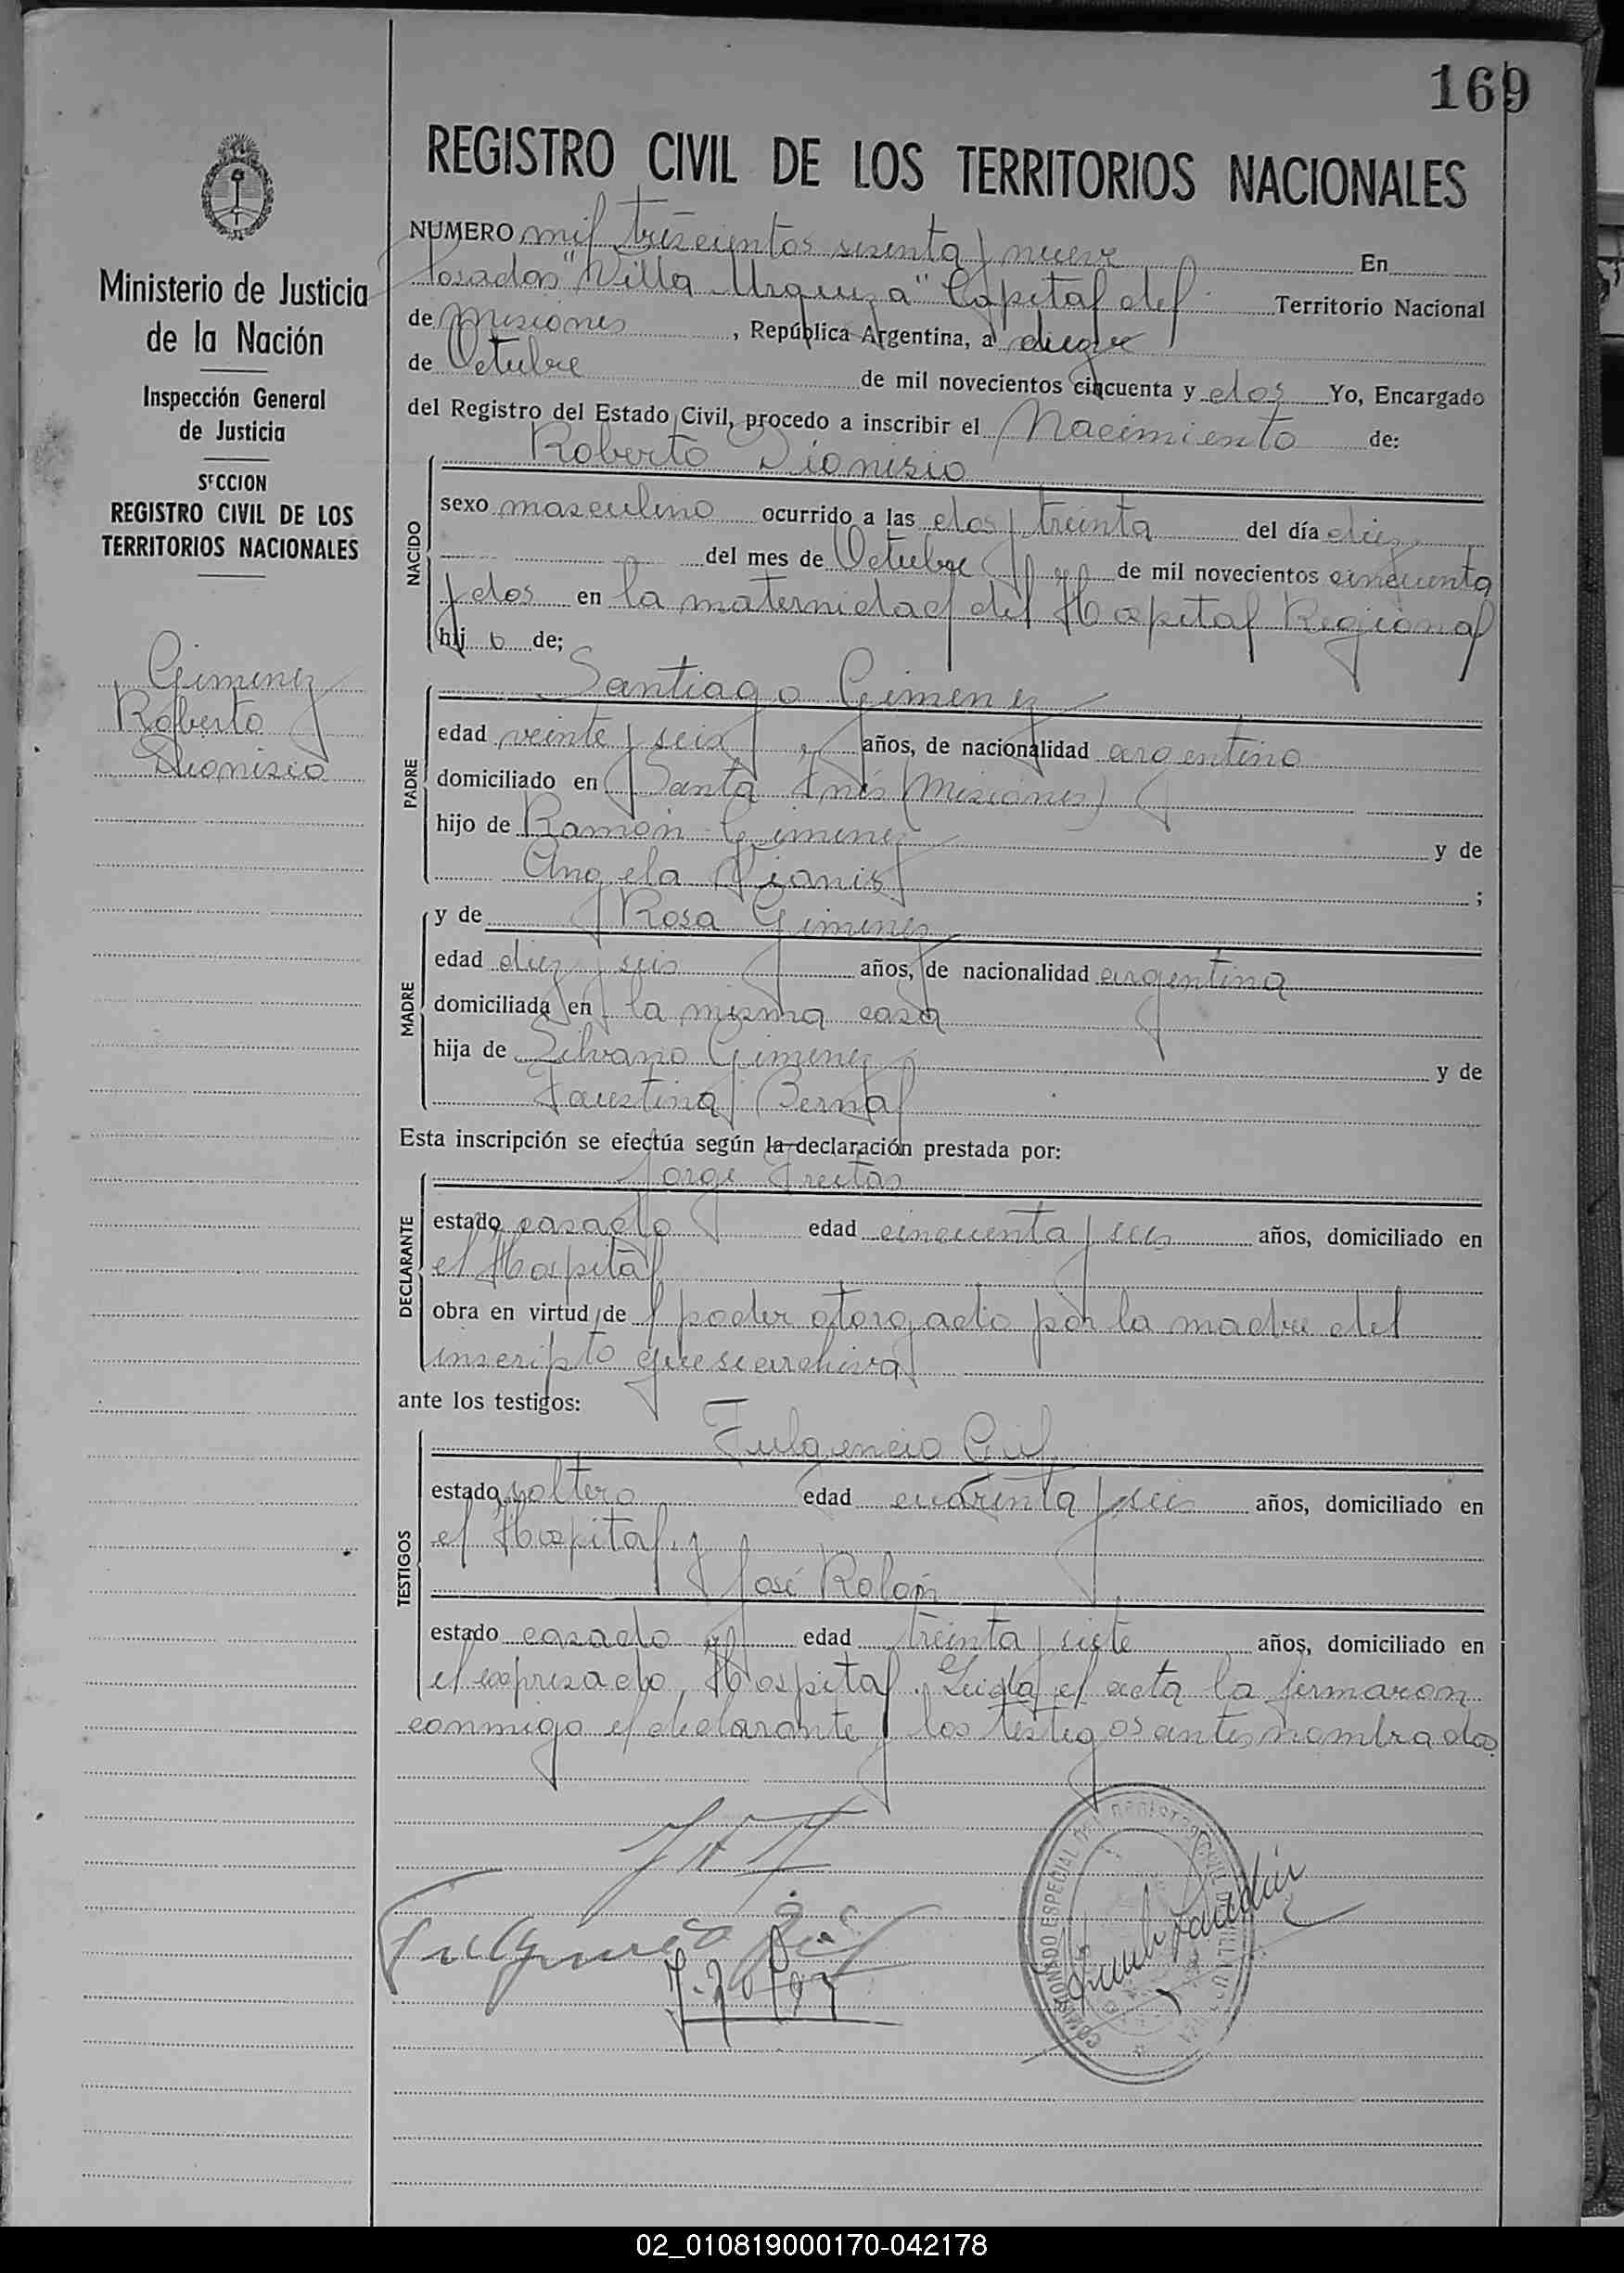 169
REGISTRO CIVIL DE LOS TERRITORIOS NACIONALES
Ministerio de Justicia
de la Nación
Inspección General
de Justicia
SECCION
REGISTRO CIVIL DE LOS
TERRITORIOS NACIONALES
Gimenez
Roberto
Dionisio
NUMERO mil trescientos sesenta y nueve En
Posadas "Villa Urquiza" Capital del Territorio Nacional
de Misiones, República Argentina, a
de Octubre de mil novecientos cincuenta y dos Yo, Encargado
del Registro del Estado Civil, procedo a inscribir el Nacimiento de:
Roberto Dionisio
NACIDO
sexo masculino ocurrido a las dos y treinta del día diez
del mes de Octubre de mil novecientos cincuenta
y dos en la maternidad del Hospital Regional
hijo de;
PADRE
Santiago Gimenez
edad veinte y seis años, de nacionalidad argentino
domiciliado en Santa Inés (Misiones)
hijo de Ramón Gimenez y de
Angela ;
MADRE
y de Rosa Gimenez
edad diez y seis años, de nacionalidad argentina
domiciliada en la misma casa
hija de Silvano Gimenez y de
Faustina Bernal
Esta inscripción se efectúa según la declaración prestada por:
DECLARANTE
Jorge Freitas
estado casado edad cincuenta y seis años, domiciliado en
el Hospital
obra en virtud de poder otorgado por la madre del
inscripto que se archiva
ante los testigos:
TESTIGOS
Fulgencio Gil
estado soltero edad cuarenta y seis años, domiciliado en
el Hospital y
José Rolón
estado casado edad treinta y siete años, domiciliado en
el expresado Hospital. Leida el acta la firmaron
conmigo el declarante y los testigos antes nombrados.
Fulgencio Gil
J. Rolón
COMISIONADO ESPECIAL DEL REGISTRO CIVIL
02_010819000170-042178